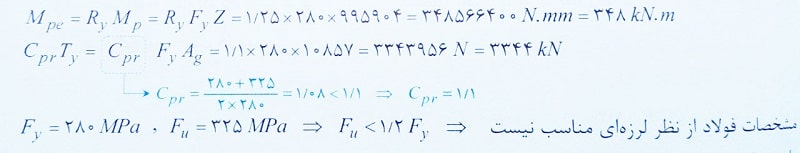 M_pe = R_y M_p = R_y F_y Z = ۱/۲۵×۲۸۰×۹۹۵۹۰۴ = ۳۴۸۵۶۶۴۰۰ N.mm = ۳۴۸ kN.m
C_pr T_y = C_pr F_y A_g = ۱/۱×۲۸۰×۱۰۸۵۷ = ۳۳۴۳۹۵۶ N = ۳۳۴۴ kN
C_pr = (۲۸۰+۳۲۵)/(۲×۲۸۰) = ۱/۰۸ < ۱/۱ ⇒ C_pr = ۱/۱
F_y = ۲۸۰ MPa , F_u = ۳۲۵ MPa ⇒ F_u < ۱/۲ F_y ⇒ مشخصات فولاد از نظر لرزه‌ای مناسب نیست